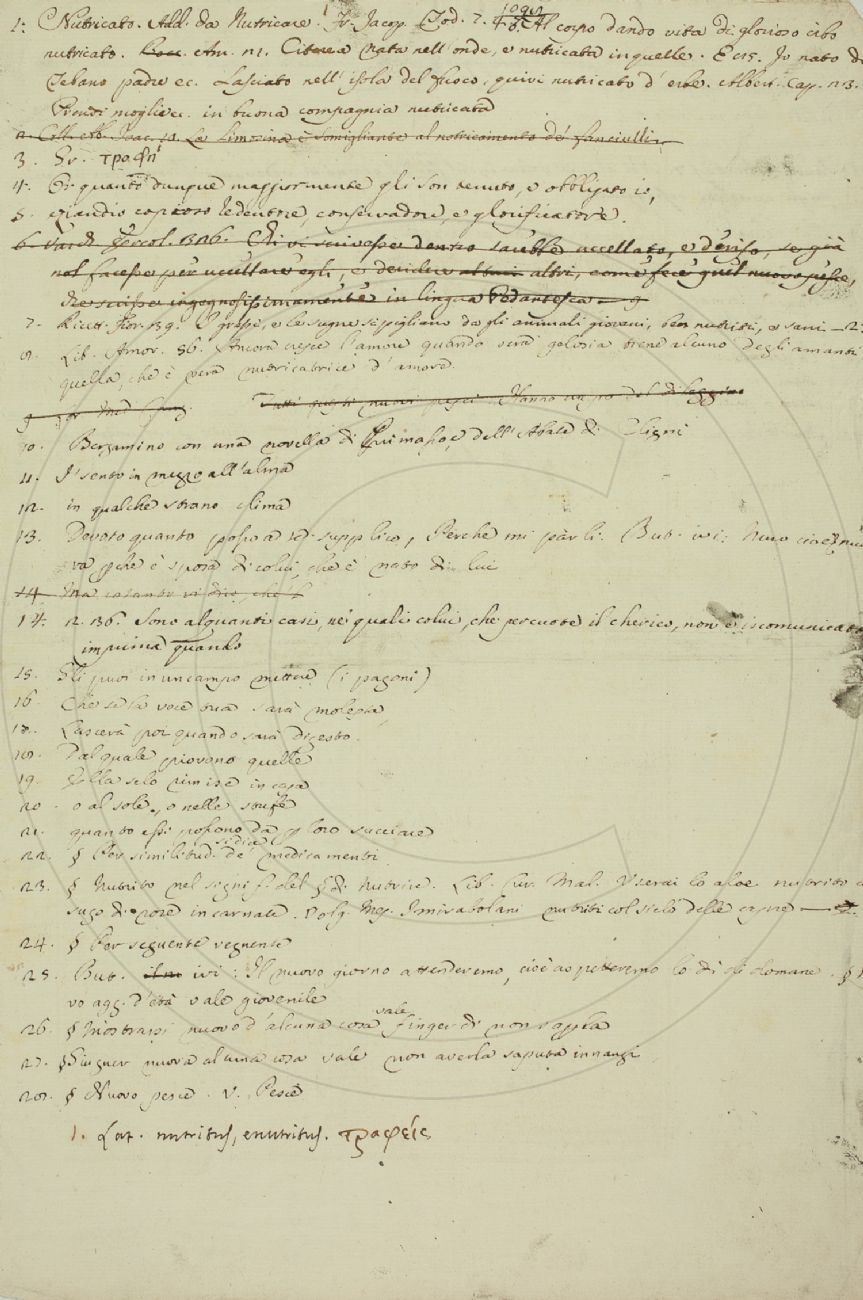 1: Nutricato. Add. da Nutricare. Fr. Jacop. Tod. 7. Al corpo dando vita di glorioso cibo
nutricato. Am. 71. Citerea nata nell'onde, e nutricata in quelle. E 15. Io nato di
Tebano padre ec. lasciato nell'isola del fuoco, quivi nutricato d'erbe. Albert. Cap. 23.
Prendi moglie ec. in buona compagnia nutricata
2. Coll. Ab. Isac. La limosina è somigliante al notricamento de' fanciulli
3. Gr. τραφή
4. Or quanto dunque maggiormente gli son tenuto, e obbligato io,
5. redentore, conservadore, e glorificatore.
6. Varch. Ercol. Chi vi scrivesse dentro sarebbe uccellato, e deriso, se già
nol facesse per uccellare egli, e deridere altri, come fece quel nuovo pesce,
che scrisse ingegnosissimamente in lingua Pedantesca
7. Ricett. Fior. 39. I grassi, e le sugne si pigliano da gli animali giovani, ben nutriti, e sani — 2.
8. Lib. Amor. 56. Ancora cresce l'amore quando vera gelosia tiene alcuno degli amanti
quella, che è vera nutricatrice d'amore.
9
10. Bergamino con una novella di Primasso, e dell'Abate di Cligni
11. I' sento in mezzo all'alma
12. in qualche strano clima
13. Devoto quanto posso a te supplico, Perche mi parli. But. ivi: Nuro cioè nuo
ra pche è sposa di colui, che è nato di lui
14. Ma
14. n. 136. Sono alquanti casi, ne' quali colui, che percuote il cherico, non è iscomunicato
imprima quando
15. Gli puoi in un campo mettere (i pagoni)
16. Che se la voce tua sarà molesta,
17. Lascerà poi quando sarà digesto.
18. Dal quale piovono quelle
19. Ella selo rimise in casa
20. o al sole, o nelle stufe
21. quando essi possono da p loro succiare
22. § Per similitud. de' medicamenti
23. § Nutrito nel signif. del § di Nutrire. Lib. Cur. Mal. Userai lo aloe nutrito c
sugo di rose incarnate. Volg. Mes. I mirabolani nutriti col siero delle capre — 2.
24. § Per seguente vegnente
25. But. ivi: Il nuovo giorno attenderemo, cioè aspetteremo lo dì di domane. §
vo agg. d'età vale giovenile
26. § Mostrarsi nuovo d'alcuna cosa vale finger di non saperla
27. § Giugner nuova alcuna cosa vale non averla saputa innanzi
28. § Nuovo pesce. V. Pesce
1. Lat. nutritus, enutritus. τραφείς